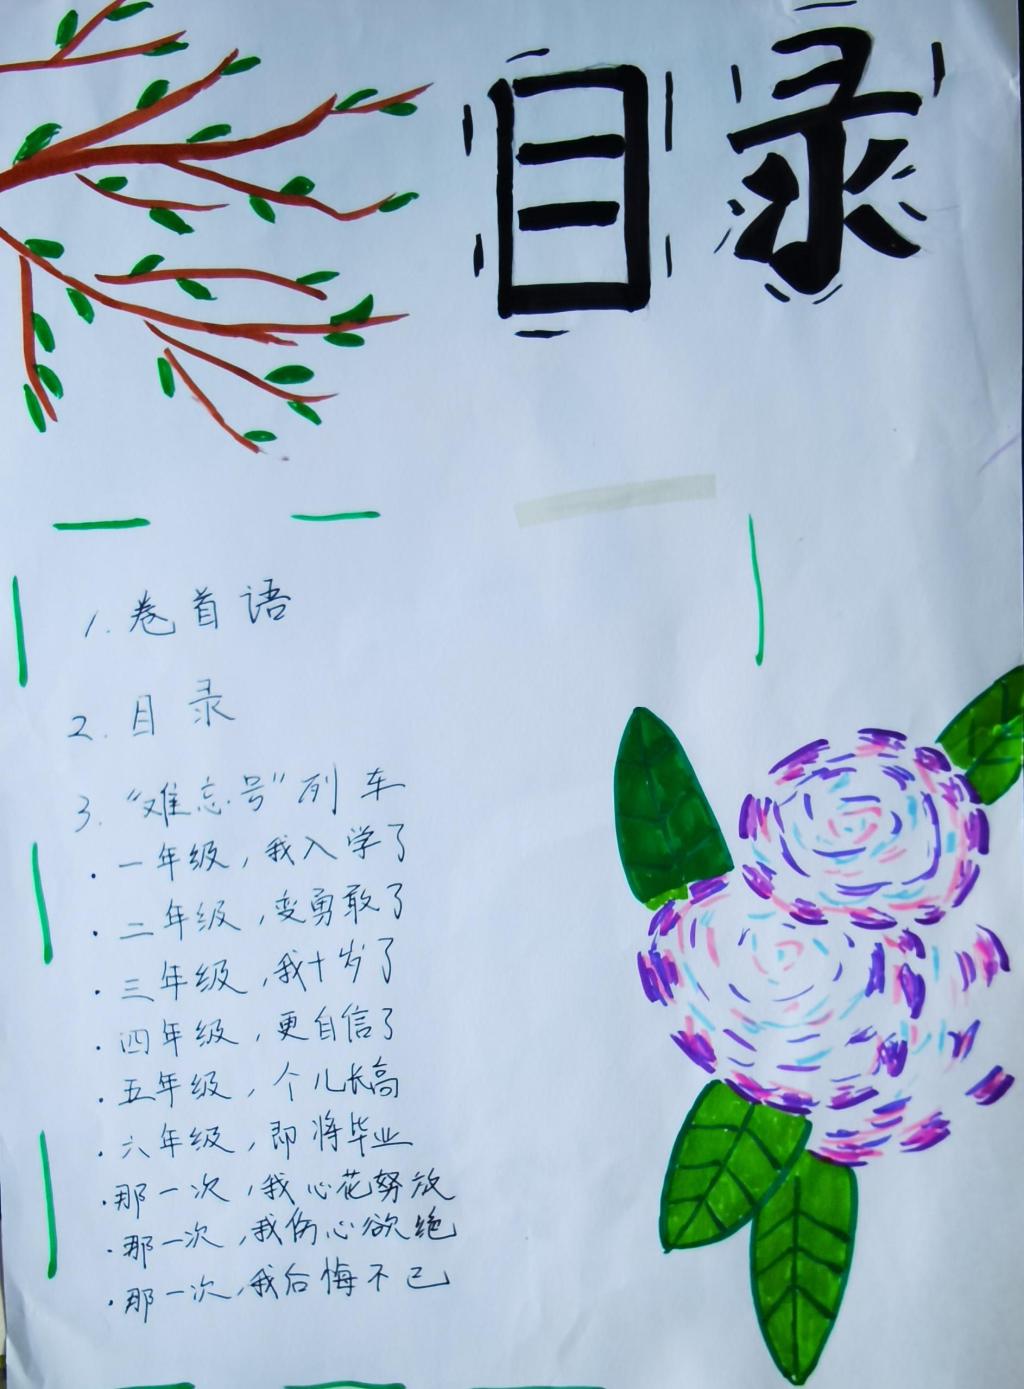 目录
1. 卷首语
2. 目录
3. “难忘号”列车
· 一年级，我入学了
· 二年级，变勇敢了
· 三年级，我十岁了
· 四年级，更自信了
· 五年级，个儿长高
· 六年级，即将毕业
· 那一次，我心花努放
· 那一次，我伤心欲绝
· 那一次，我后悔不已